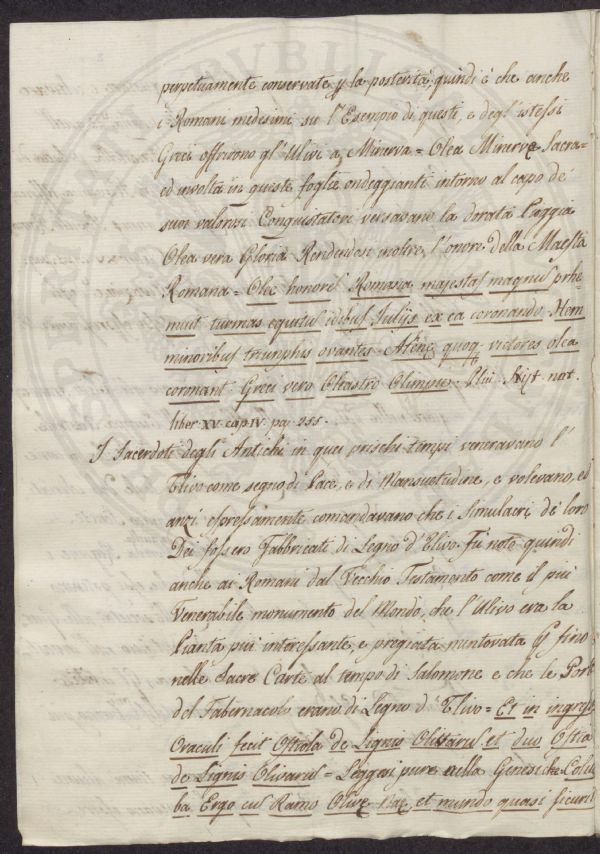 perpetuamente conservate p la posterità, quindi è che anche
i Romani medesimi su l'Esempio di questi, e degl'istessi
Greci offerirono gl'Ulivi a Minerva = Olea Minervę Sacra =
ed involta in queste foglie ondeggianti intorno al capo de
suoi valorosi Conquistatori versavano la dorata Pioggia
Olea vera Gloria Rendendosi inoltre l'onore della Maestà
Romana = Oleę honoris Romana majestas magnus prhe=
muit turmas equitus idibus Julijs ex ea coronando. Item
minoribus triumphis ovantes. Atenę quoq. victores olea
coronant. Greci vero Oleastro Olimpię. Plin. Hist. nat.
liber XV. cap. IV. pag. 255.
I Sacerdoti degli Antichi in quei prischi tempi veneravano l'
Ulivo come segno di Pace, e di Mansuetudine, e volevano, ed
anzi espressamente comandavano che i Simulacri de loro
Dei fossero Fabbricati di Legno d'Ulivo. Fù noto quindi
anche ai Romani dal Vecchio Testamento come il più
Venerabile monumento del Mondo, che l'Ulivo era la
Pianta più interessante, e pregiata mentovata fino
nelle Sacre Carte al tempo di Salomone e che le Port
del Tabernacolo erano di Legno d'Ulivo = Et in ingress
Oraculi fecit Ostiola de Lignis Olivarus et duo Ostia
de Lignis Olivarus = Leggesi pure nella Genesi che Colu
ba Ergo cus Ramo Olivę et mundo quasi sicuri